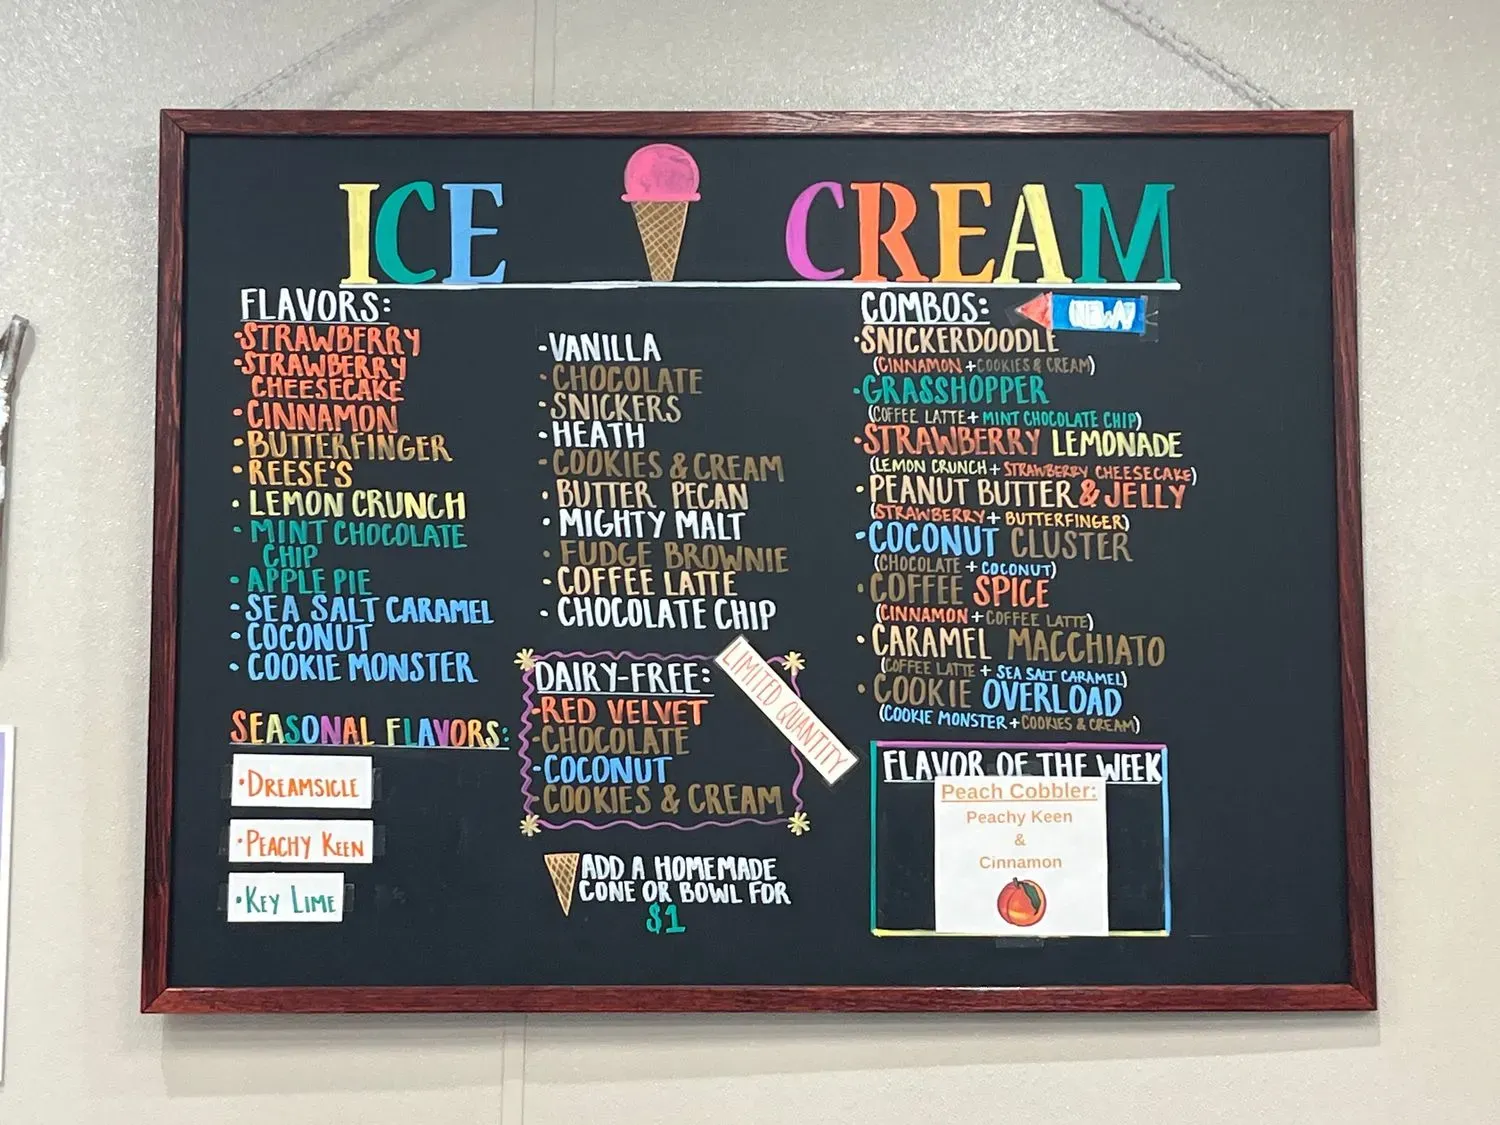 ICE CREAM
FLAVORS:
·STRAWBERRY
·STRAWBERRY
CHEESECAKE
·CINNAMON
·BUTTERFINGER
·REESE'S
·LEMON CRUNCH
·MINT CHOCOLATE
CHIP
·APPLE PIE
·SEA SALT CARAMEL
·COCONUT
·COOKIE MONSTER
SEASONAL FLAVORS:
·DREAMSICLE
·PEACHY KEEN
·KEY LIME
·VANILLA
·CHOCOLATE
·SNICKERS
·HEATH
·COOKIES & CREAM
·BUTTER PECAN
·MIGHTY MALT
·FUDGE BROWNIE
·COFFEE LATTE
·CHOCOLATE CHIP
DAIRY-FREE:
·RED VELVET
·CHOCOLATE
·COCONUT
·COOKIES & CREAM
LIMITED QUANTITY
ADD A HOMEMADE
CONE OR BOWL FOR
$1
COMBOS:
NEW
·SNICKERDOODLE
(CINNAMON + COOKIES & CREAM)
·GRASSHOPPER
(COFFEE LATTE + MINT CHOCOLATE CHIP)
·STRAWBERRY LEMONADE
(LEMON CRUNCH + STRAWBERRY CHEESECAKE)
·PEANUT BUTTER & JELLY
(STRAWBERRY + BUTTERFINGER)
·COCONUT CLUSTER
(CHOCOLATE + COCONUT)
·COFFEE SPICE
(CINNAMON + COFFEE LATTE)
·CARAMEL MACCHIATO
(COFFEE LATTE + SEA SALT CARAMEL)
·COOKIE OVERLOAD
(COOKIE MONSTER + COOKIES & CREAM)
FLAVOR OF THE WEEK
Peach Cobbler:
Peachy Keen
&
Cinnamon